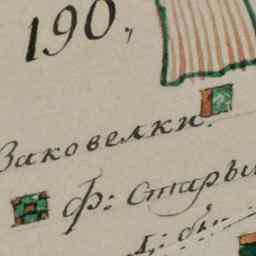 190,
Заковелки.
ф: старыи